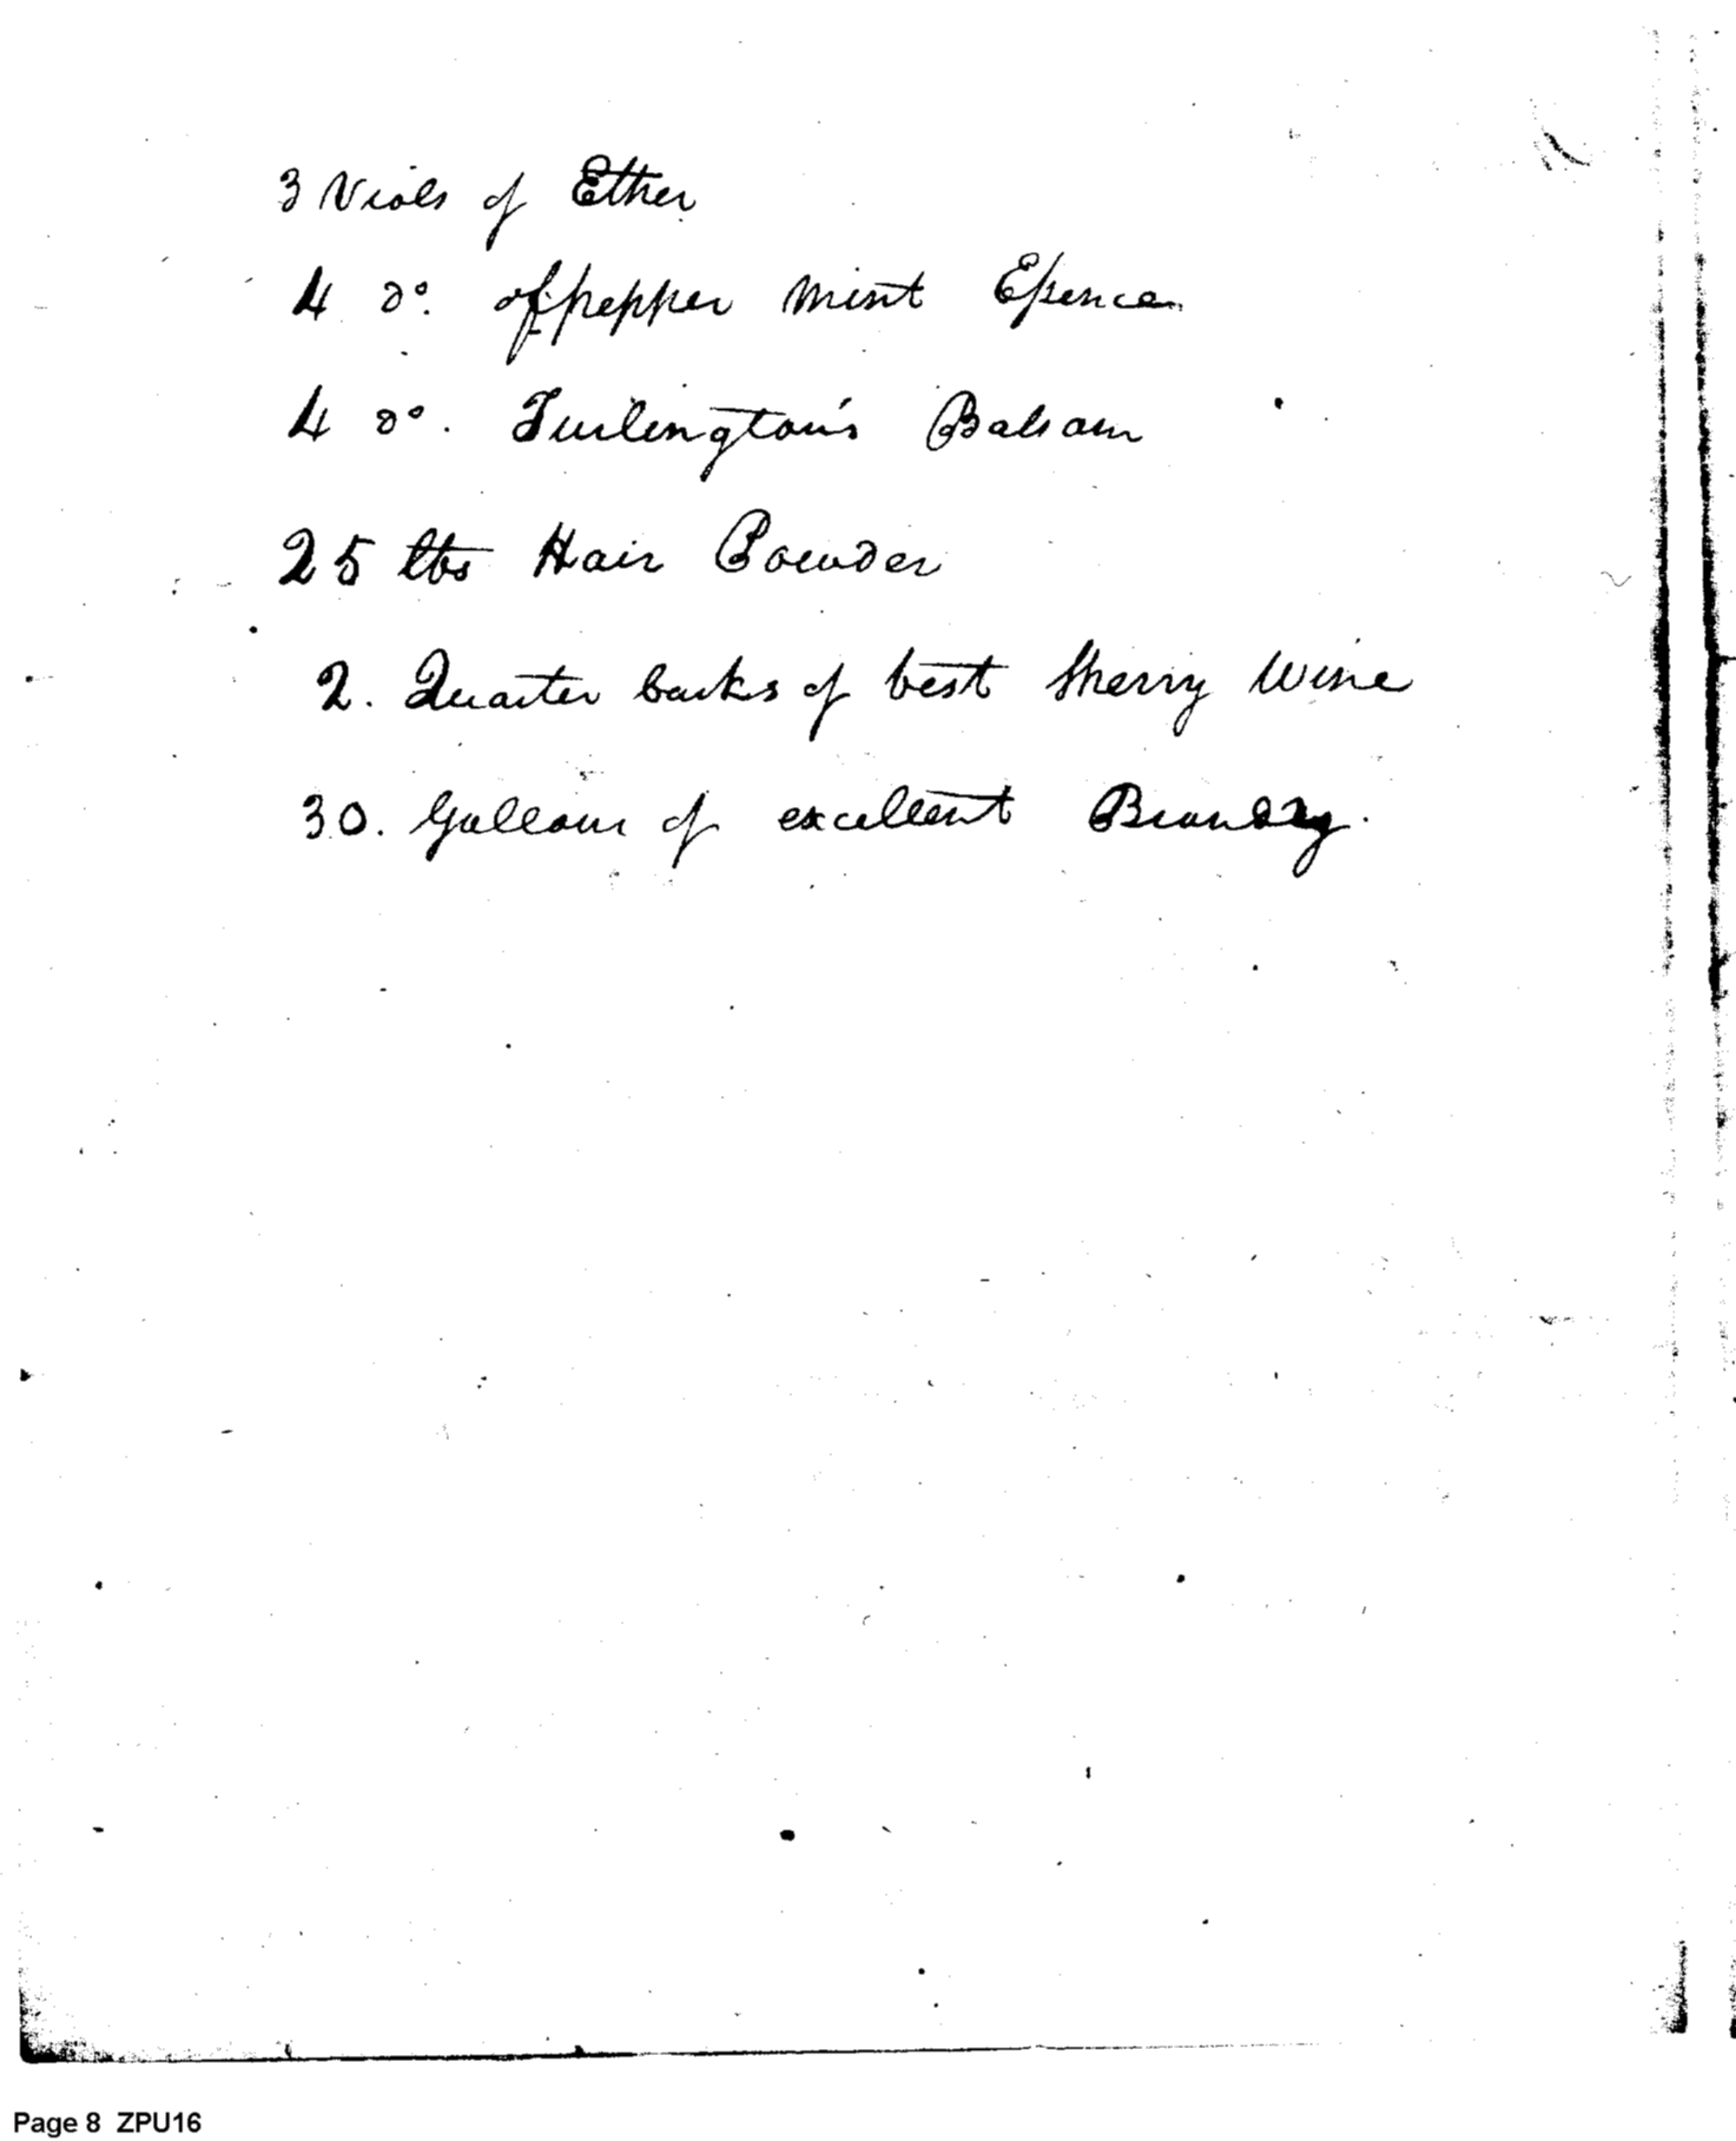 3 Viols of Ether
4 do. of pepper mint Essence
4 do. Turlington's Balsam
25 lbs Hair Powder
2. Quarter casks of best Sherry Wine
30. Gallons of excellent Brandy.
Page 8 ZPU16